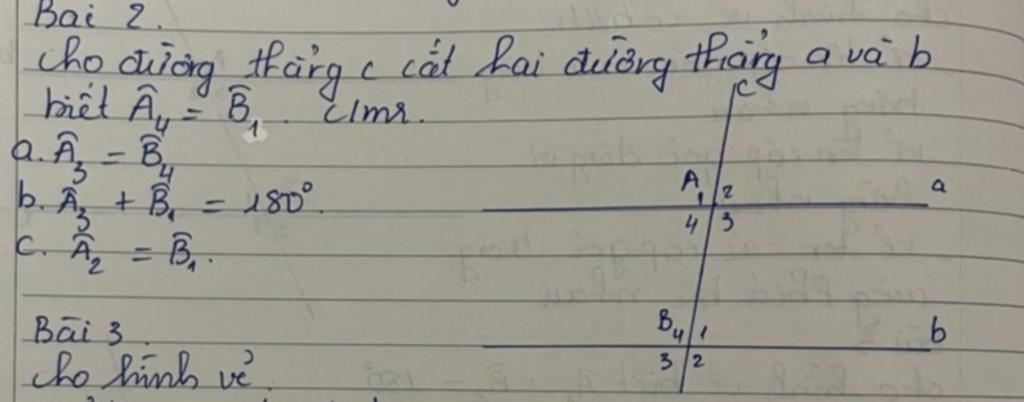 Bài 2.
Cho đường thẳng c cắt hai đường thẳng a và b
biết Â₄ = B̂₁. C/mr.
a. Â₃ = B̂₄
b. Â₃ + B̂₁ = 180°.
c. Â₂ = B̂₁.
c
A 1 2 a
4 3
B 4 1 b
3 2
Bài 3.
Cho hình vẽ.